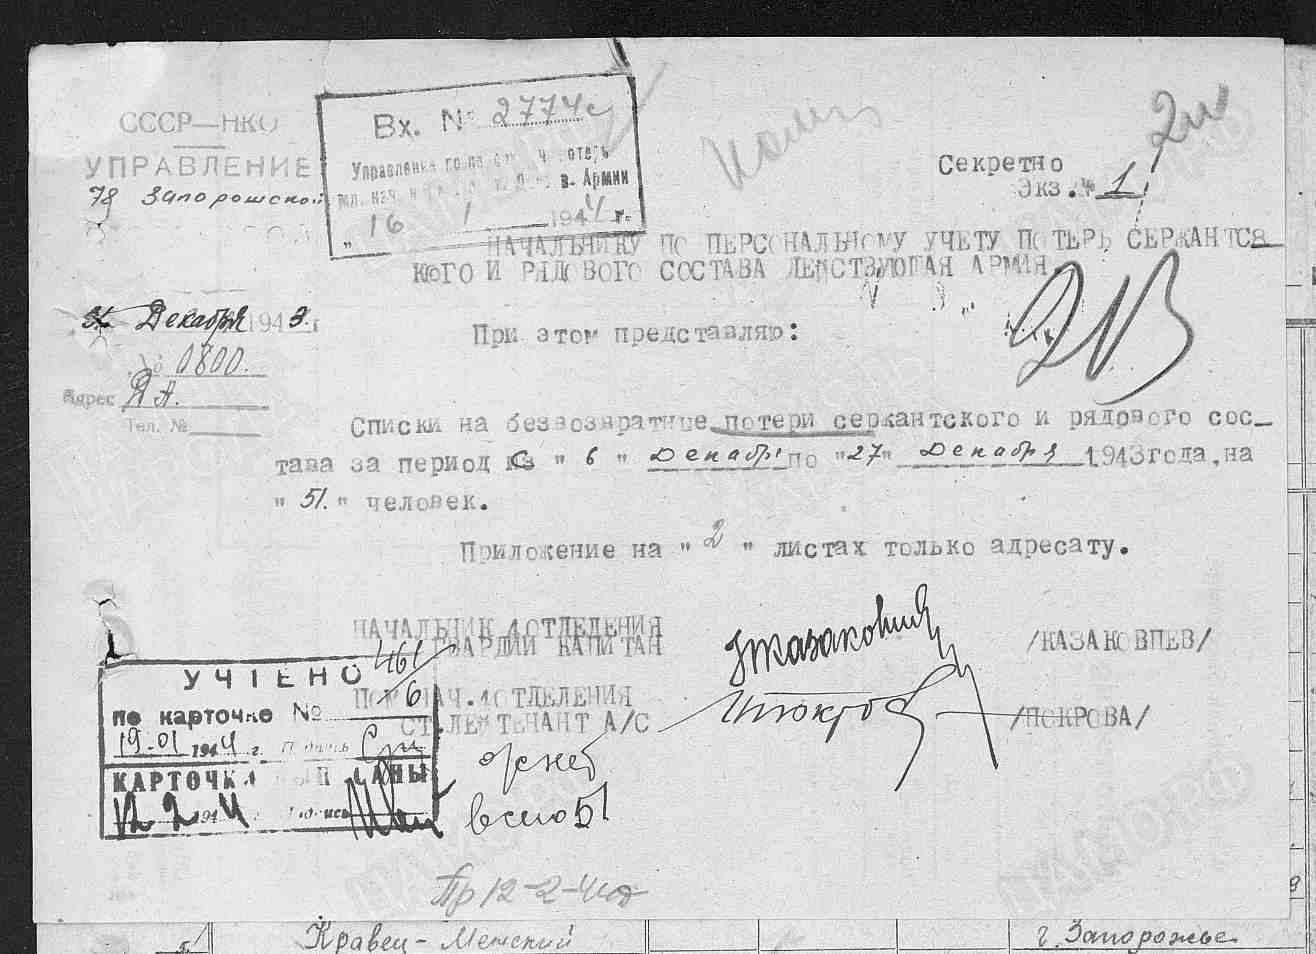 СССР—НКО
УПРАВЛЕНИЕ
78 Запорожской
Вх. № 2774с
Управления по
в. Армии
" 16 1 1944 г.
Секретно
Экз. № 1
НАЧАЛЬНИКУ ПО ПЕРСОНАЛЬНОМУ УЧЕТУ ПОТЕРЬ СЕРЖАНТСВ
КОГО И РЯДОВОГО СОСТАВА ДЕЙСТВУЮЩАЯ АРМИЯ
31 Декабря 1943 г
№ 0800.
Адрес Д А.
Тел. №
При этом представляю:
Списки на безвозвратные потери сержантского и рядового сос_
тава за период с " 6 " Декабря по "27" Декабря 1943 года, на
" 51. " человек.
Приложение на " 2 " листах только адресату.
НАЧАЛЬНИК 4 ОТДЕЛЕНИЯ
ГВАРДИИ КАПИТАН
/КАЗАКОВЦЕВ/
ПОМ НАЧ. 4 ОТДЕЛЕНИЯ
СТ. ЛЕЙТЕНАНТ А/С
/ПОКРОВА/
УЧТЕНО
461
6
по карточке №
19-01 1944 г. Подпись
КАРТОЧКА
12 2 1944 Подпись
всего 51
Пр 12-2-44
51
Кравец-Менский
г. Запорожье